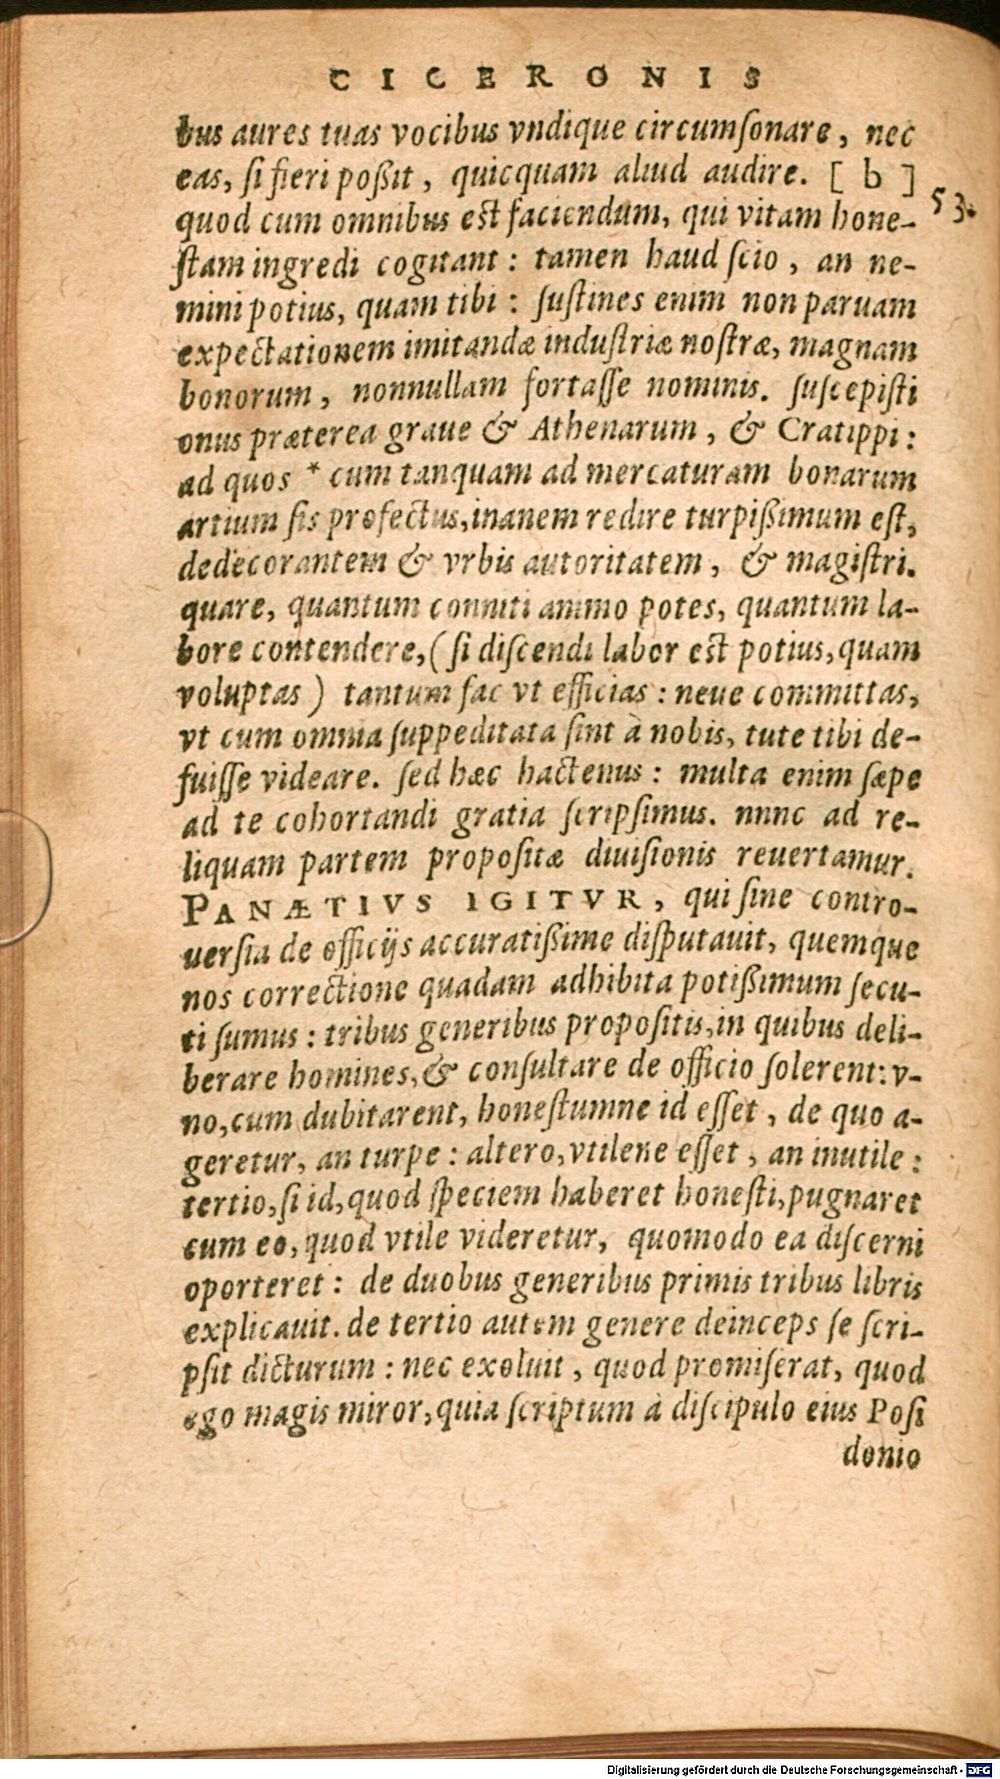 CICERONIS
bus aures tuas vocibus vndique circumſonare, nec
eas, ſi fieri poßit, quicquam aliud audire. [ b ] 53.
quod cum omnibus est faciendum, qui vitam hone-
ſtam ingredi cogitant: tamen haud ſcio, an ne-
mini potius, quam tibi: ſuſtines enim non paruam
expectationem imitandæ induſtriæ noſtræ, magnam
bonorum, nonnullam fortaſſe nominis. ſuſcepiſti
onus præterea graue & Athenarum, & Cratippi:
ad quos * cum tanquam ad mercaturam bonarum
artium ſis profectus, inanem redire turpißimum eſt,
dedecorantem & vrbis autoritatem, & magiſtri.
quare, quantum conniti animo potes, quantum la-
bore contendere, (ſi diſcendi labor est potius, quam
voluptas) tantum fac vt efficias: neue committas,
vt cum omnia ſuppeditata ſint à nobis, tute tibi de-
fuiſſe videare. ſed hæc hactenus: multa enim ſæpe
ad te cohortandi gratia ſcripſimus. nnnc ad re-
liquam partem propoſitæ diuiſionis reuertamur.
PANÆTIVS IGITVR, qui ſine contro-
uerſia de officijs accuratißime diſputauit, quemque
nos correctione quadam adhibita potißimum ſecu-
ti ſumus: tribus generibus propoſitis, in quibus deli-
berare homines, & conſultare de officio ſolerent: v-
no, cum dubitarent, honeſtumne id eſſet, de quo a-
geretur, an turpe: altero, vtilene eſſet, an inutile:
tertio, ſi id, quod ſpeciem haberet honeſti, pugnaret
cum eo, quod vtile videretur, quomodo ea diſcerni
oporteret: de duobus generibus primis tribus libris
explicauit. de tertio autem genere deinceps ſe ſcri-
pſit dicturum: nec exoluit, quod promiſerat, quod
ego magis miror, quia ſcriptum à diſcipulo eius Poſi
donio
Digitalisierung gefördert durch die Deutsche Forschungsgemeinschaft - DFG